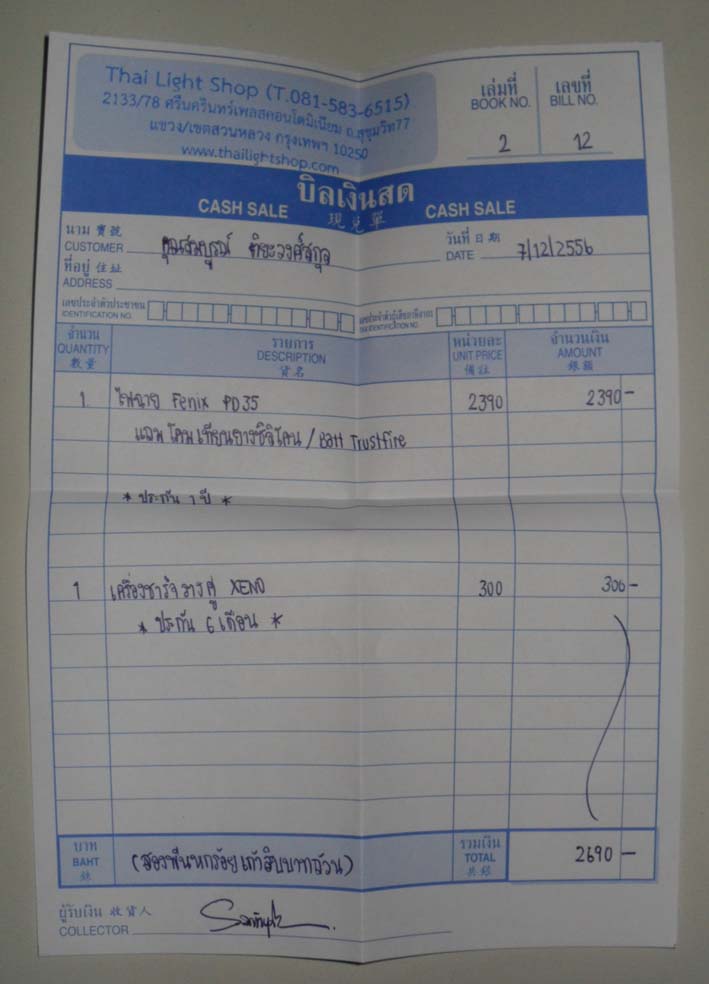 Thai Light Shop (T.081-583-6515)
2133/78 ศรีนครินทร์เพลสคอนโดมิเนียม ถ.สุขุมวิท77
แขวง/เขตสวนหลวง กรุงเทพฯ 10250
www.thailightshop.com
เล่มที่ เลขที่
BOOK NO. BILL NO.
2 12
บิลเงินสด
CASH SALE 現兌單 CASH SALE
นาม 寶號
CUSTOMER คุณสมบูรณ์
วันที่ 日期
DATE 7/12/2556
ที่อยู่ 住址
ADDRESS
เลขประจำตัวประชาชน
IDENTIFICATION NO.
เลขประจำตัวผู้เสียภาษีอากร
IDENTIFICATION NO.
จำนวน รายการ หน่วยละ จำนวนเงิน
QUANTITY DESCRIPTION UNIT PRICE AMOUNT
數量 貨名 備註 銀額
1 ไฟฉาย Fenix PD35 2390 2390 -
แถม โคมเทียนยางซิลิโคน / Batt Trustfire
* ประกัน 1 ปี *
1 เครื่องชาร์จ รางคู่ XENO 300 300 -
* ประกัน 6 เดือน *
บาท รวมเงิน
BAHT (สองพันหกร้อยเก้าสิบบาทถ้วน) TOTAL 2690 -
銖 共銀
ผู้รับเงิน 收貨人
COLLECTOR